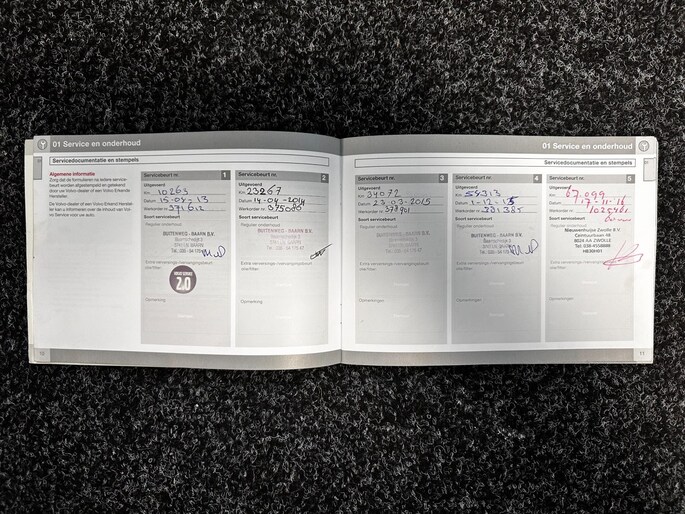 01 Service en onderhoud
Servicedocumentatie en stempels
Algemene informatie
Zorg dat de formulieren na iedere service-
beurt worden afgestempeld en getekend
door uw Volvo-dealer of een Volvo Erkende
Hersteller.
De Volvo-dealer of een Volvo Erkend Herstel-
ler kan u informeren over de inhoud van Vol-
vo Service voor uw auto.
Servicebeurt nr. 1
Uitgevoerd
Km 10263
Datum 15-04-13
Werkorder nr. 371612
Soort servicebeurt
Regulier onderhoud
BUITENWEG - BAARN B.V.
Extra verversings-/vervangingsbeurt
olie/filter:
VOLVO SERVICE
2.0
Opmerking
Servicebeurt nr. 2
Uitgevoerd
Km 23267
Datum 14-04-2014
Werkorder nr. 375000
Soort servicebeurt
Regulier onderhoud
BUITENWEG - BAARN B.V.
Extra verversings-/vervangingsbeurt
olie/filter:
Opmerking
10
01 Service en onderhoud
Servicedocumentatie en stempels
Servicebeurt nr. 3
Uitgevoerd
Km 34072
Datum 23-03-2015
Werkorder nr. 378901
Soort servicebeurt
Regulier onderhoud
BUITENWEG - BAARN B.V.
Extra verversings-/vervangingsbeurt
olie/filter:
Opmerkingen
Servicebeurt nr. 4
Uitgevoerd
Km 54313
Datum 2-12-15
Werkorder nr. 381385
Soort servicebeurt
Regulier onderhoud
BUITENWEG - BAARN B.V.
Extra verversings-/vervangingsbeurt
olie/filter:
Opmerkingen
Servicebeurt nr. 5
Uitgevoerd
Km 67.099
Datum 17-11-16
Werkorder nr. 1025961
Soort servicebeurt
Regulier onderhoud
Nieuwenhuijse Zwolle B.V.
Ceintuurbaan 48
8024 AA ZWOLLE
Tel. 038-4558888
Extra verversings-/vervangingsbeurt
olie/filter:
Opmerkingen
11